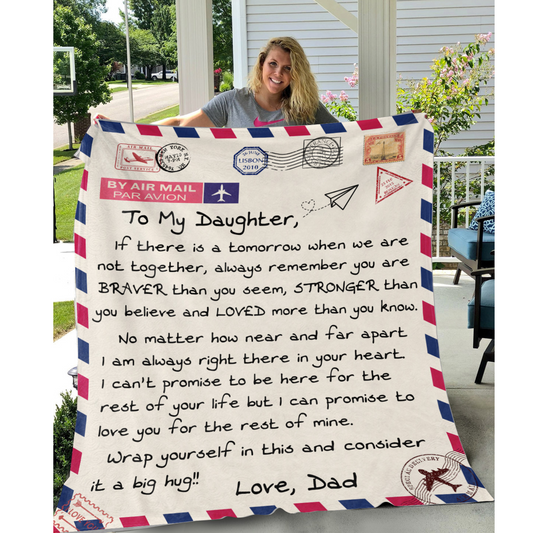 AIR MAIL
NEW YORK
LISBON
2010
BY AIR MAIL
PAR AVION
To My Daughter,
If there is a tomorrow when we are
not together, always remember you are
BRAVER than you seem, STRONGER than
you believe and LOVED more than you know.
No matter how near and far apart
I am always right there in your heart
I can't promise to be here for the
rest of your life but I can promise to
love you for the rest of mine.
Wrap yourself in this and consider
it a big hug!!
Love, Dad
SPECIAL DELIVERY
AIR MAIL
LOVE